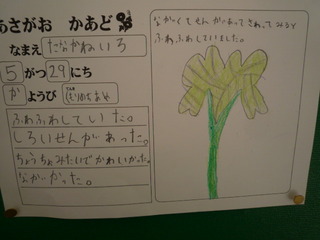 あさがお かあど
なまえ
5がつ29にち
かようび
ふわふわしていた。
しろいせんがあった。
ちょうちょみたいでかわいかった。
ながかった。
ながくてせんがあってさわってみると
ふわふわしていました。